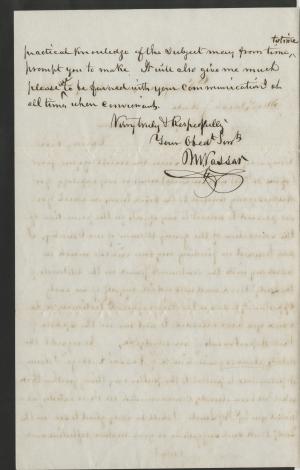 practical knowledge of the subject may from time to time
prompt you to make. It will also give me much
pleasure to be favored with your communications at
all times when convenient.
Very truly & Respectfully
Your Obedt Servt
M Vassar